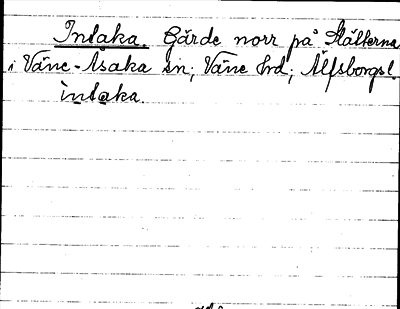 Intaka. Gärde norr på Slätterna
i Väne-Åsaka sn; Väne hrd; Älfsborgs l.
ìntaka.